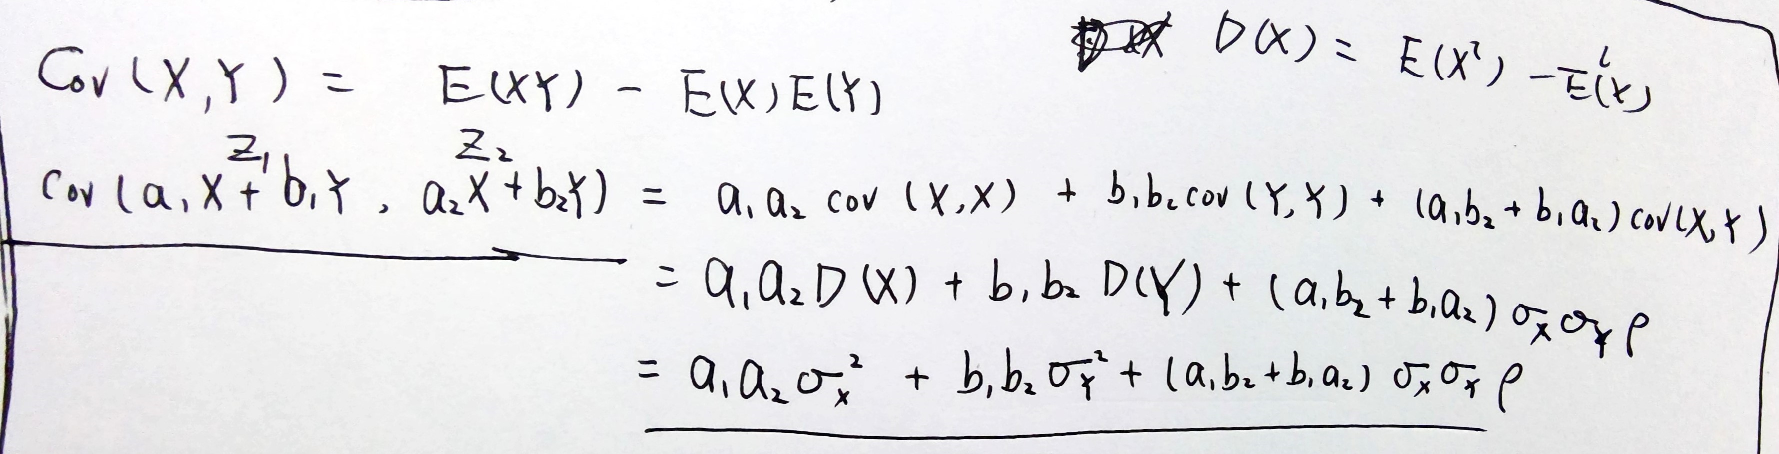 D(X) = E(X²) - E²(X)
Cov(X,Y) = E(XY) - E(X)E(Y)
Z₁ Z₂
Cov(a₁X + b₁Y, a₂X + b₂Y) = a₁a₂ cov(X,X) + b₁b₂ cov(Y,Y) + (a₁b₂ + b₁a₂) cov(X,Y)
= a₁a₂D(X) + b₁b₂ D(Y) + (a₁b₂ + b₁a₂) σ_X σ_Y ρ
= a₁a₂σ_X² + b₁b₂σ_Y² + (a₁b₂ + b₁a₂) σ_X σ_Y ρ